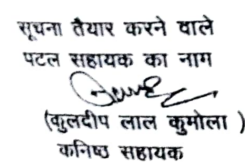 सूचना तैयार करने वाले
पटल सहायक का नाम
(कुलदीप लाल कुमोला )
कनिष्ठ सहायक